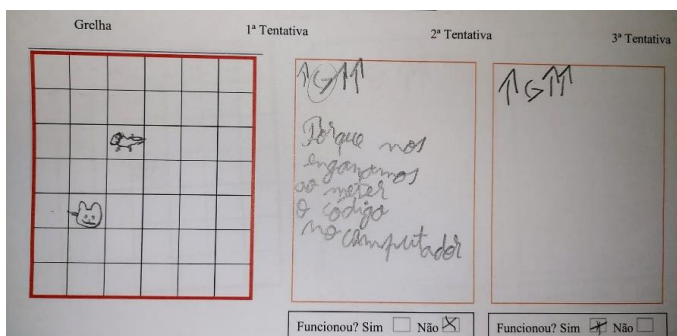 Grelha
1ª Tentativa
2ª Tentativa
3ª Tentativa
↑G↑↑
Porque nos
enganamos
ao meter
o código
no computador
↑G↑↑
Funcionou? Sim Não X
Funcionou? Sim X Não